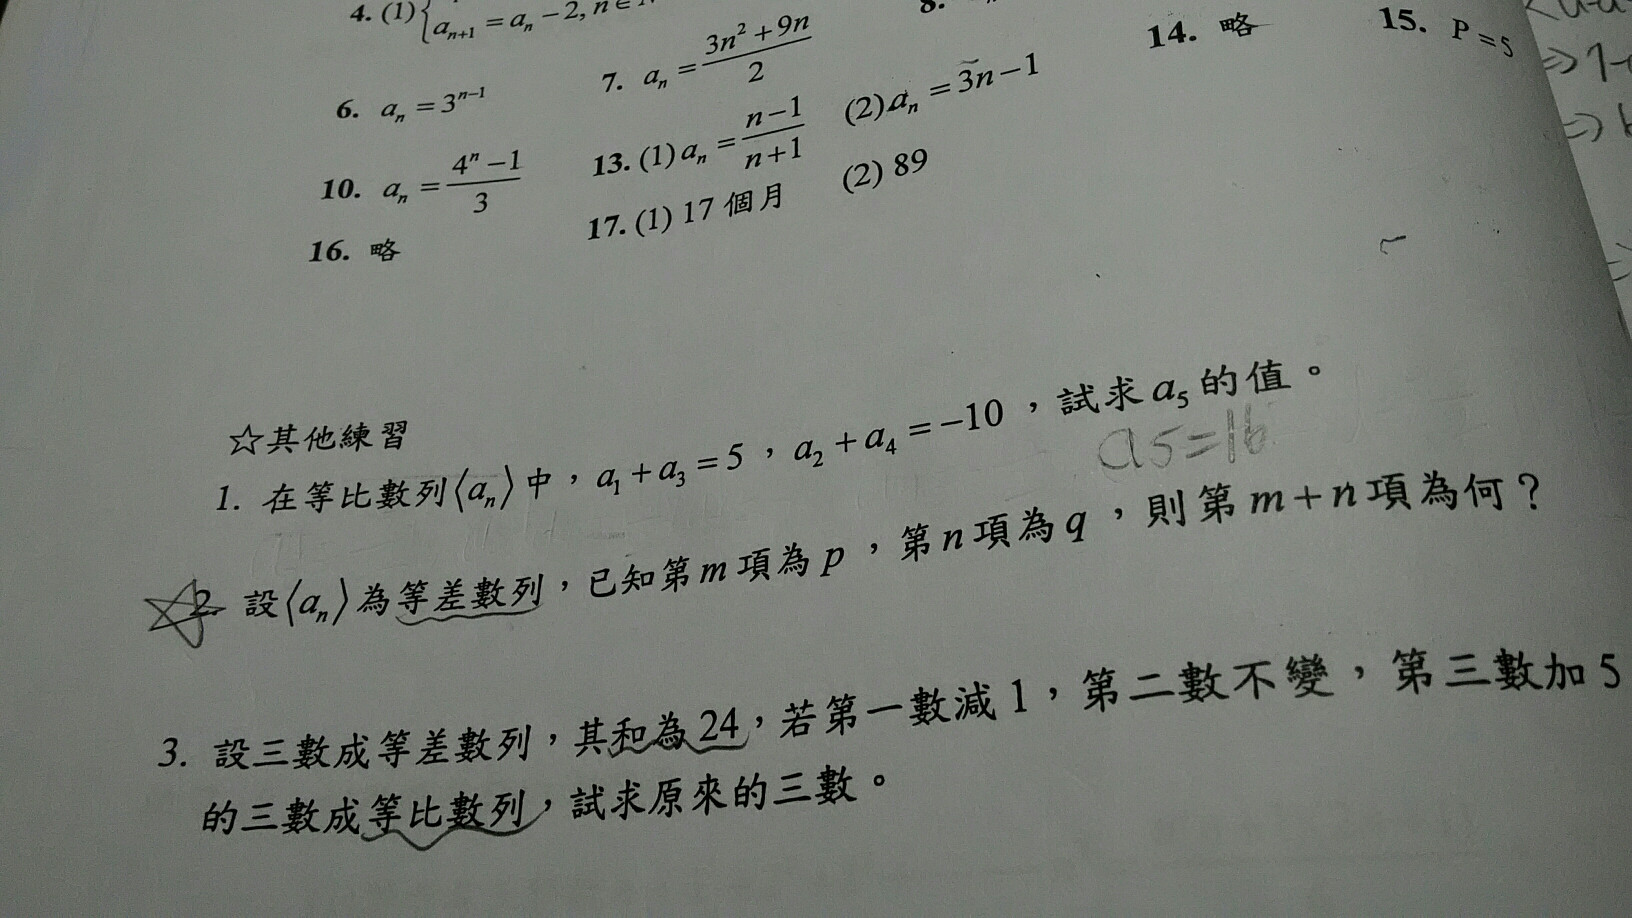 4. (1) { aₙ₊₁ = aₙ − 2, n ∈
8.
6. aₙ = 3ⁿ⁻¹
7. aₙ = (3n² + 9n)/2
14. 略
15. P = 5
10. aₙ = (4ⁿ − 1)/3
13. (1) aₙ = (n − 1)/(n + 1) (2) aₙ = 3n − 1
16. 略
17. (1) 17 個月 (2) 89
☆其他練習
1. 在等比數列⟨aₙ⟩中，a₁ + a₃ = 5，a₂ + a₄ = −10，試求 a₅ 的值。
a5=16
2. 設⟨aₙ⟩為等差數列，已知第 m 項為 p，第 n 項為 q，則第 m + n 項為何？
3. 設三數成等差數列，其和為 24，若第一數減 1，第二數不變，第三數加 5
的三數成等比數列，試求原來的三數。